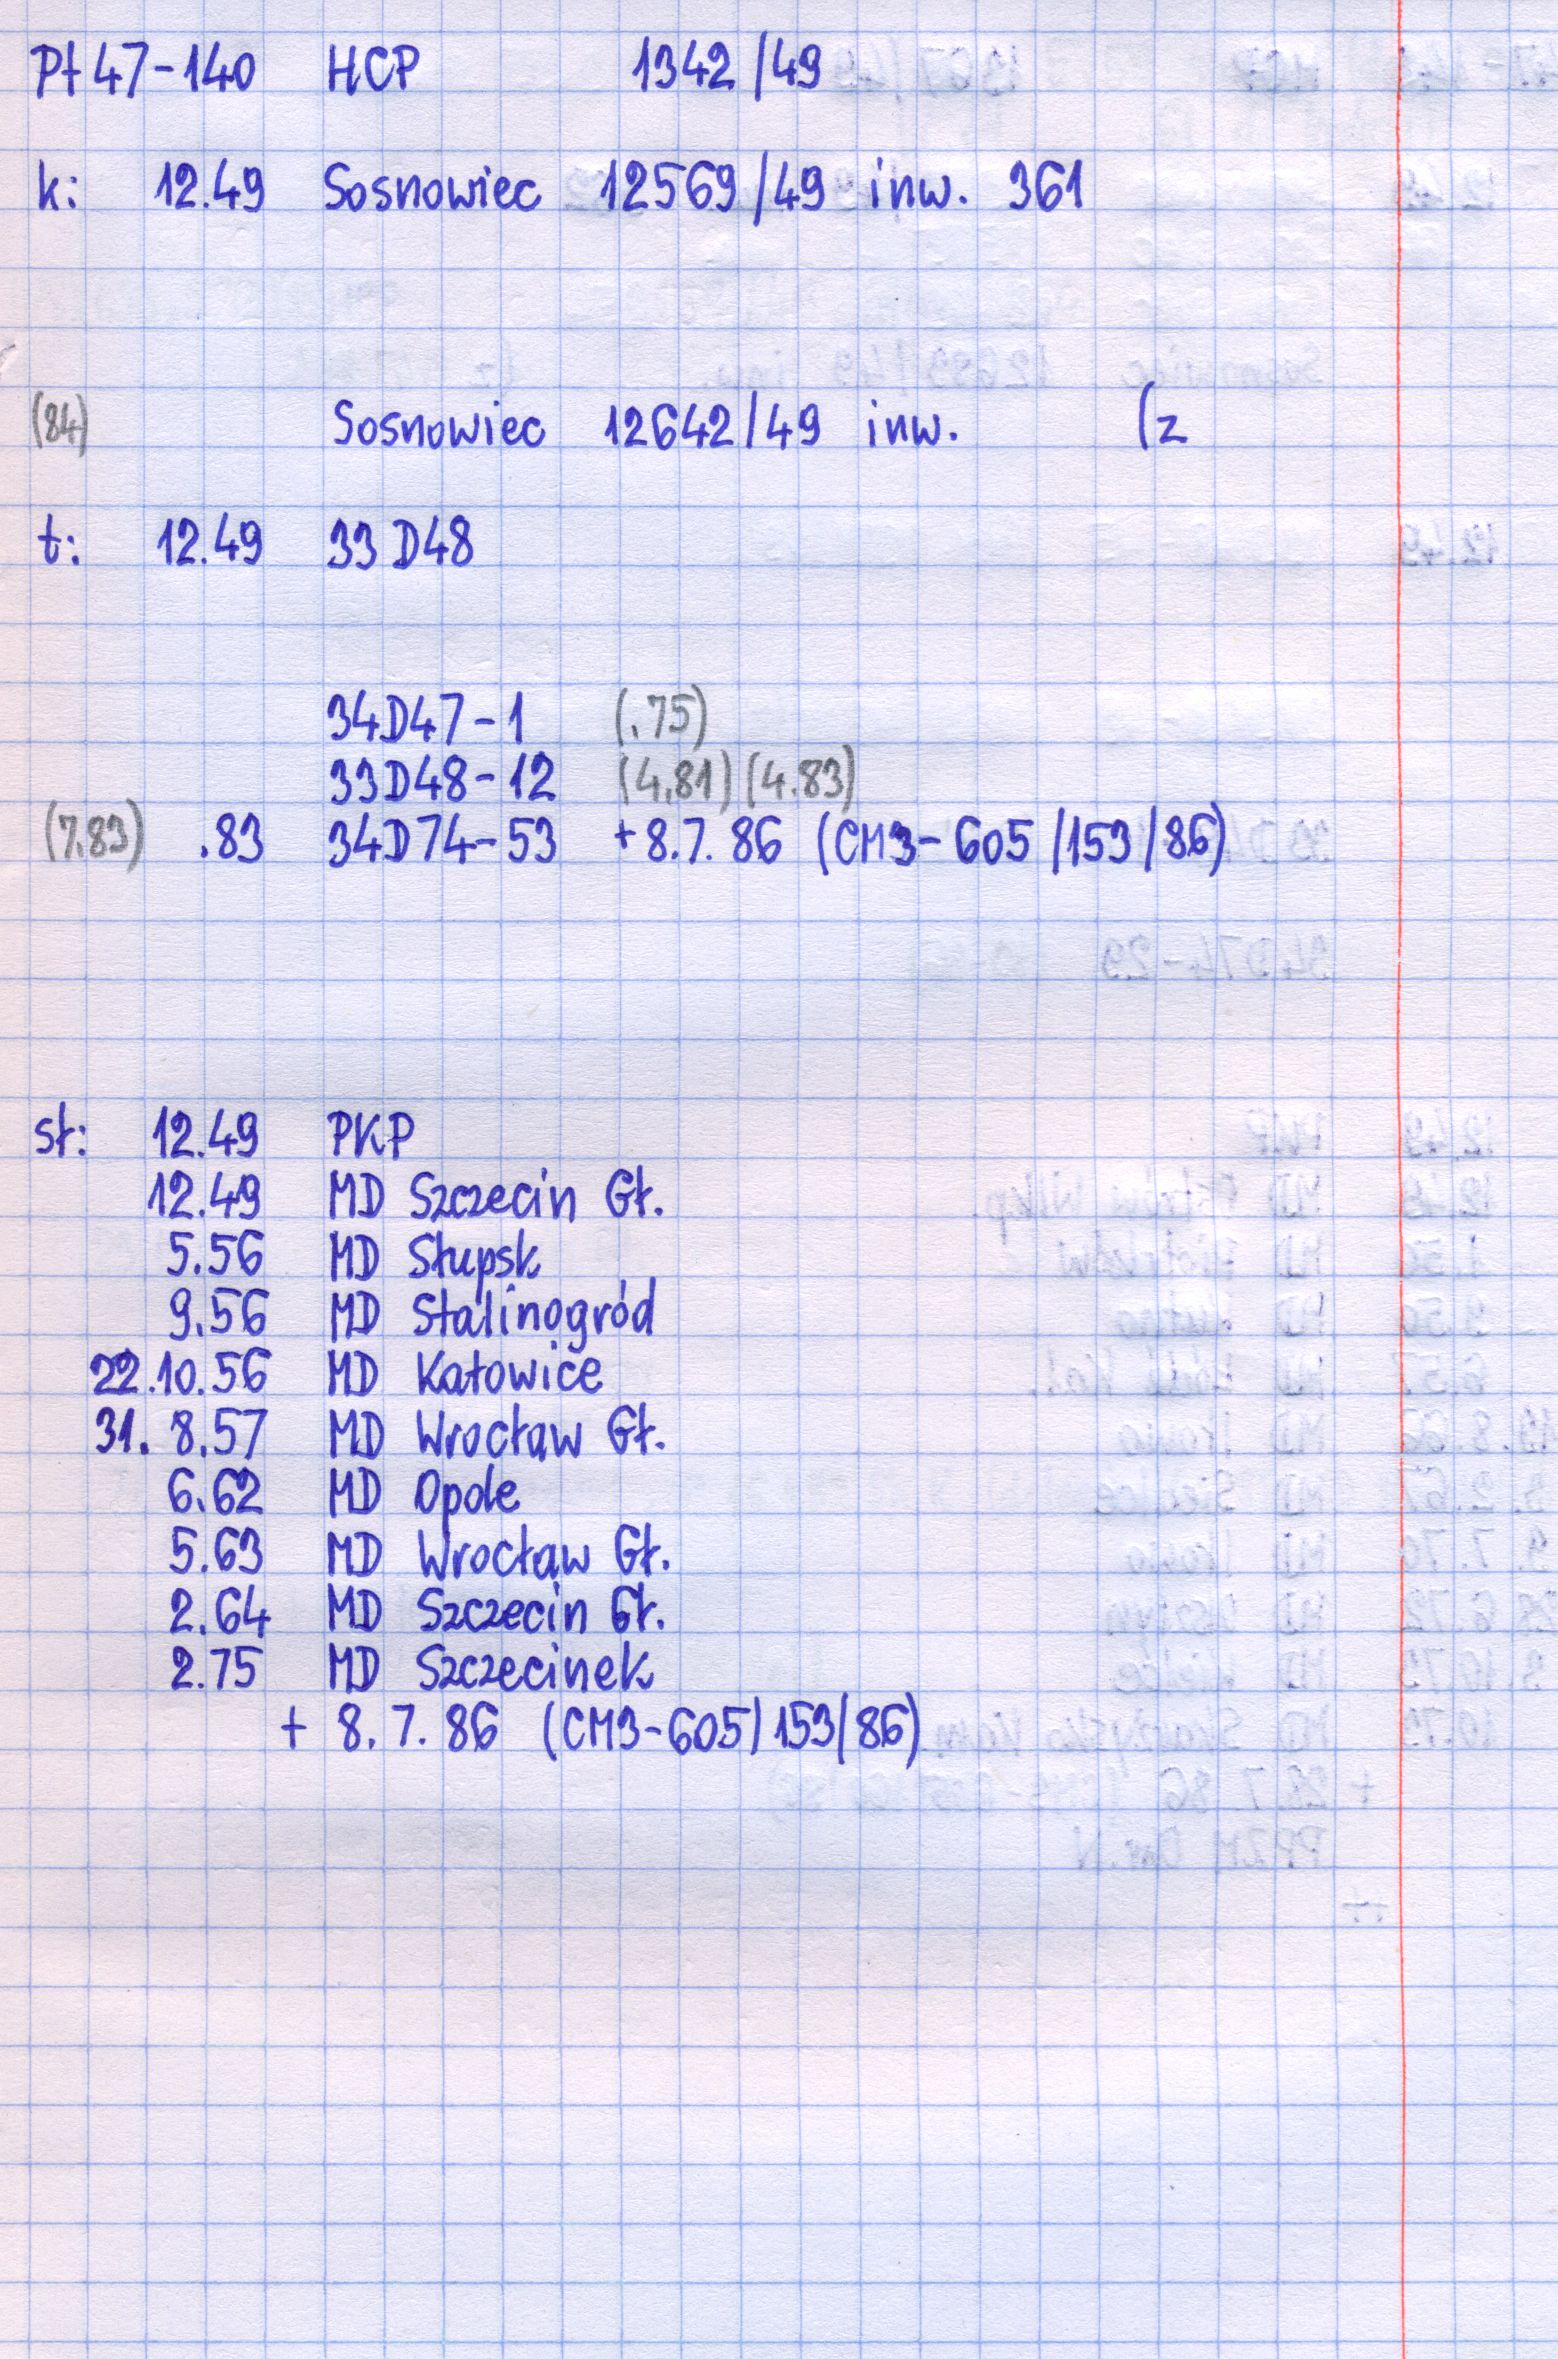 Pt47-140 HCP 1342/49
k: 12.49 Sosnowiec 12569/49 inw. 361
(84) Sosnowiec 12642/49 inw. (z
t: 12.49 33D48
34D47-1 (.75)
33D48-12 (4.81) (4.83)
(7.83) .83 34D74-53 +8.7.86 (CM3-605/153/86)
st: 12.49 PKP
12.49 MD Szczecin Gł.
5.56 MD Słupsk
9.56 MD Stalinogród
22.10.56 MD Katowice
31.8.57 MD Wrocław Gł.
6.62 MD Opole
5.63 MD Wrocław Gł.
2.64 MD Szczecin Gł.
2.75 MD Szczecinek
+ 8.7.86 (CM3-605/153/86)